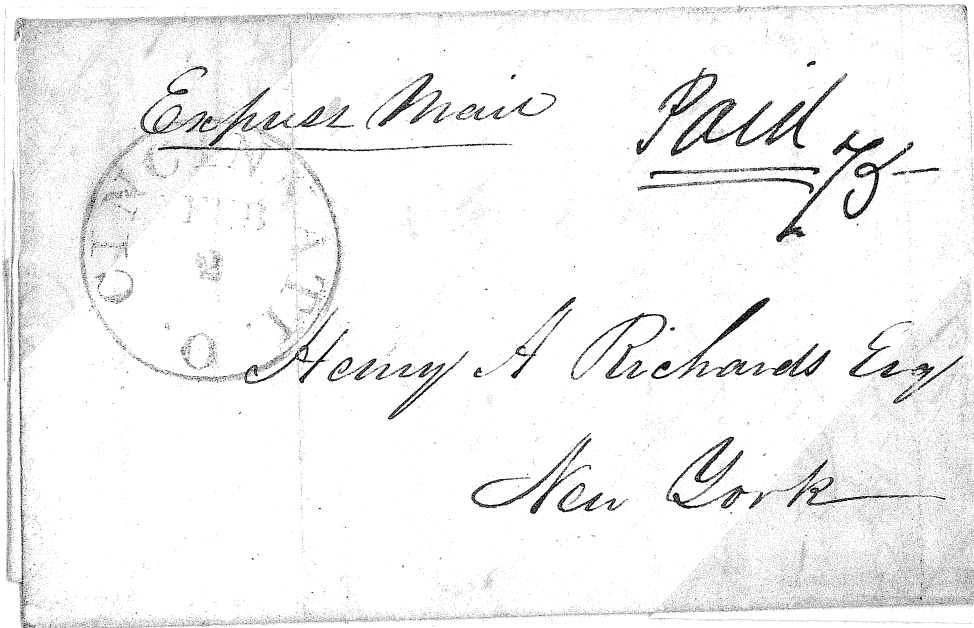 Express Mail
Paid 75
CINCINNATI. O.
FEB
2
Henry A Richards Esq
New York